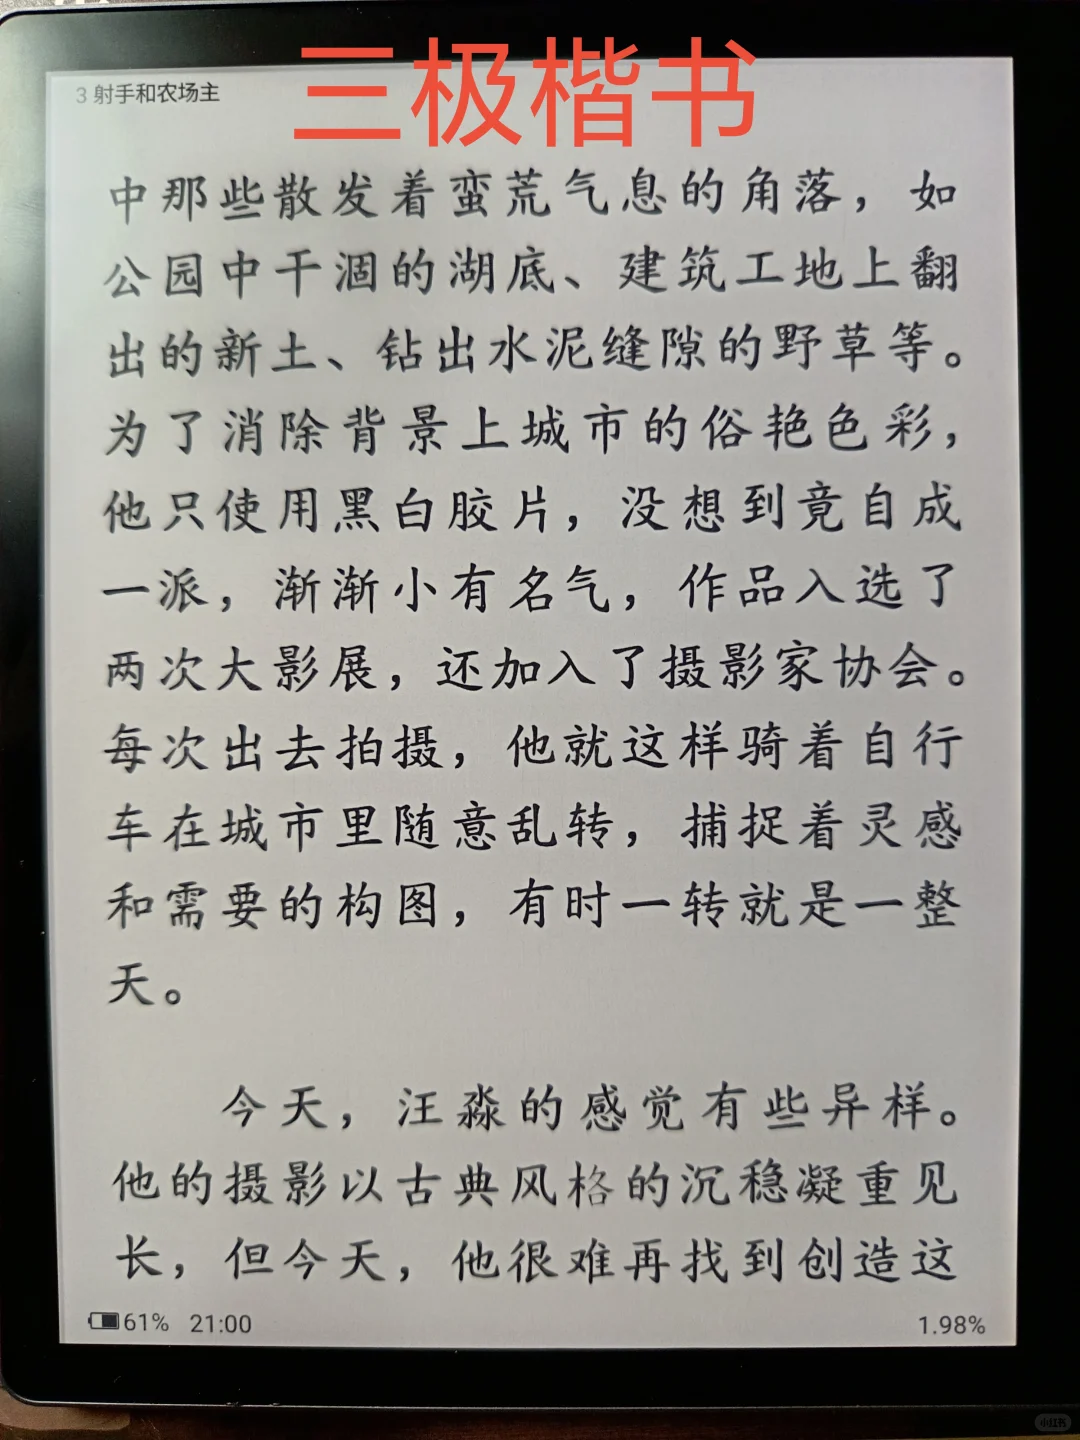 三极楷书
3 射手和农场主
中那些散发着蛮荒气息的角落，如
公园中干涸的湖底、建筑工地上翻
出的新土、钻出水泥缝隙的野草等。
为了消除背景上城市的俗艳色彩，
他只使用黑白胶片，没想到竟自成
一派，渐渐小有名气，作品入选了
两次大影展，还加入了摄影家协会。
每次出去拍摄，他就这样骑着自行
车在城市里随意乱转，捕捉着灵感
和需要的构图，有时一转就是一整
天。
今天，汪淼的感觉有些异样。
他的摄影以古典风格的沉稳凝重见
长，但今天，他很难再找到创造这
61% 21:00
1.98%
小红书